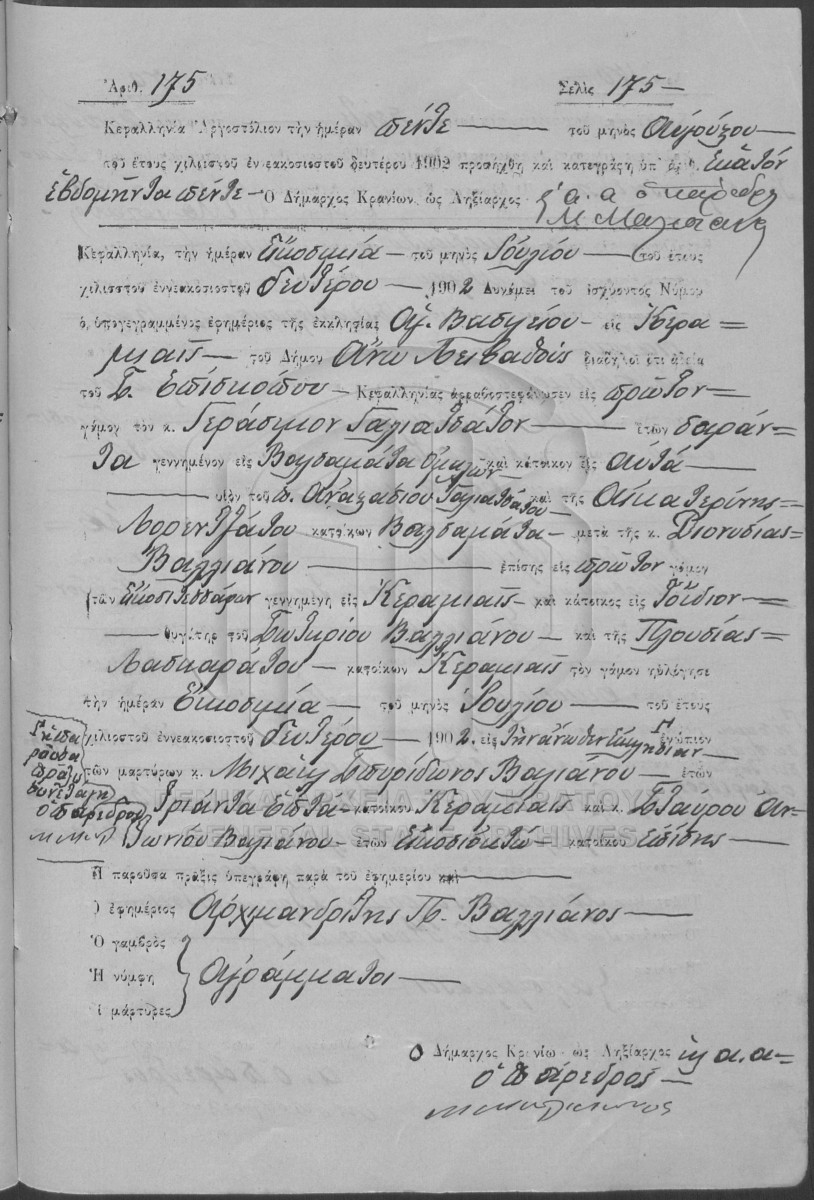 Ἀριθ. 175 Σελὶς 175
Κεφαλληνία Ἀργοστόλιον τὴν ἡμέραν πέντε τοῦ μηνὸς Αὐγούστου
τοῦ ἔτους χιλιοστοῦ ἐννεακοσιοστοῦ δευτέρου 1902 προσήχθη καὶ κατεγράφη ὑπ' ἀριθ. Ἑκατὸν
ἑβδομῆντα πέντε – Ὁ Δήμαρχος Κρανίων ὡς Ληξίαρχος α. α ὁ πάρεδρος
Κεφαλληνία, τὴν ἡμέραν Εἰκοσιμιά – τοῦ μηνὸς Ἰουλίου – τοῦ ἔτους
χιλιοστοῦ ἐννεακοσιοστοῦ δευτέρου – 1902 Δυνάμει τοῦ ἰσχύοντος Νόμου
ὁ, ὑπογεγραμμένος ἐφημέριος τῆς ἐκκλησίας Ἁγ. Βασιλείου – εἰς Κερα=
μιαῖς – τοῦ Δήμου Ἄνω Λειβαθοῦς διαδηλοῖ ὅτι ἀδεία
τοῦ Σ. Ἐπισκόπου – Κεφαλληνίας ἀρραβοστεφάνωσεν εἰς πρῶτον
γάμον τὸν κ. Γεράσιμον Γαλιατσάτον – ἐτῶν σαράν=
τα γεννημένον εἰς Βαλσαμάτα Ὁμαλῶν καὶ κάτοικον εἰς αὐτά –
υἱὸν τοῦ π. Ἀναστασίου Γαλιατσάτου – καὶ τῆς Αἰκατερίνης=
Λορεντζάτου κατοίκων Βαλσαμάτα – μετὰ τῆς κ. Διονυσίας=
Βαλλιάνου – ἐπίσης εἰς πρῶτον γάμον
ἐτῶν εἰκοσιτεσσάρων γεννημένη εἰς Κεραμιαῖς – καὶ κάτοικος εἰς τὸ ἴδιον –
θυγάτηρ τοῦ Σωτηρίου Βαλλιάνου – καὶ τῆς Πλουσίας=
Λασκαράτου – κατοίκων Κεραμιαῖς τὸν γάμον ηὐλόγησε
τὴν ἡμέραν Εἰκοσιμιά – τοῦ μηνὸς Ἰουλίου – τοῦ ἔτους
χιλιοστοῦ ἐννεακοσιοστοῦ δευτέρου – 1902. εἰς τὴν ἄνωθεν ἐκκλησίαν ἐνώπιον
τῶν μαρτύρων κ. Μιχαὴλ Σπυρίδωνος Βαλιάνου – ἐτῶν
τριάντα ἑπτά – κατοίκου Κεραμιαῖς καὶ κ. Σταύρου Ἀν=
τωνίου Βαλιάνου – ἐτῶν εἰκοσιοκτώ – κατοίκου ἐπίσης –
ὁ πάρεδρος
Ἡ παροῦσα πρᾶξις ὑπεγράφη παρὰ τοῦ ἐφημερίου καὶ
Ὁ ἐφημέριος Ἀρχιμανδρίτης Π. Βαλλιάνος –
Ὁ γαμβρὸς
Ἡ νύμφη Ἀγράμματοι –
Οἱ μάρτυρες
Ὁ Δήμαρχος Κρανίων ὡς Ληξίαρχος κ α. α=
ὁ πάρεδρος –
ΓΕΝΙΚΑ ΑΡΧΕΙΑ ΤΟΥ ΚΡΑΤΟΥΣ
GENERAL STATE ARCHIVES